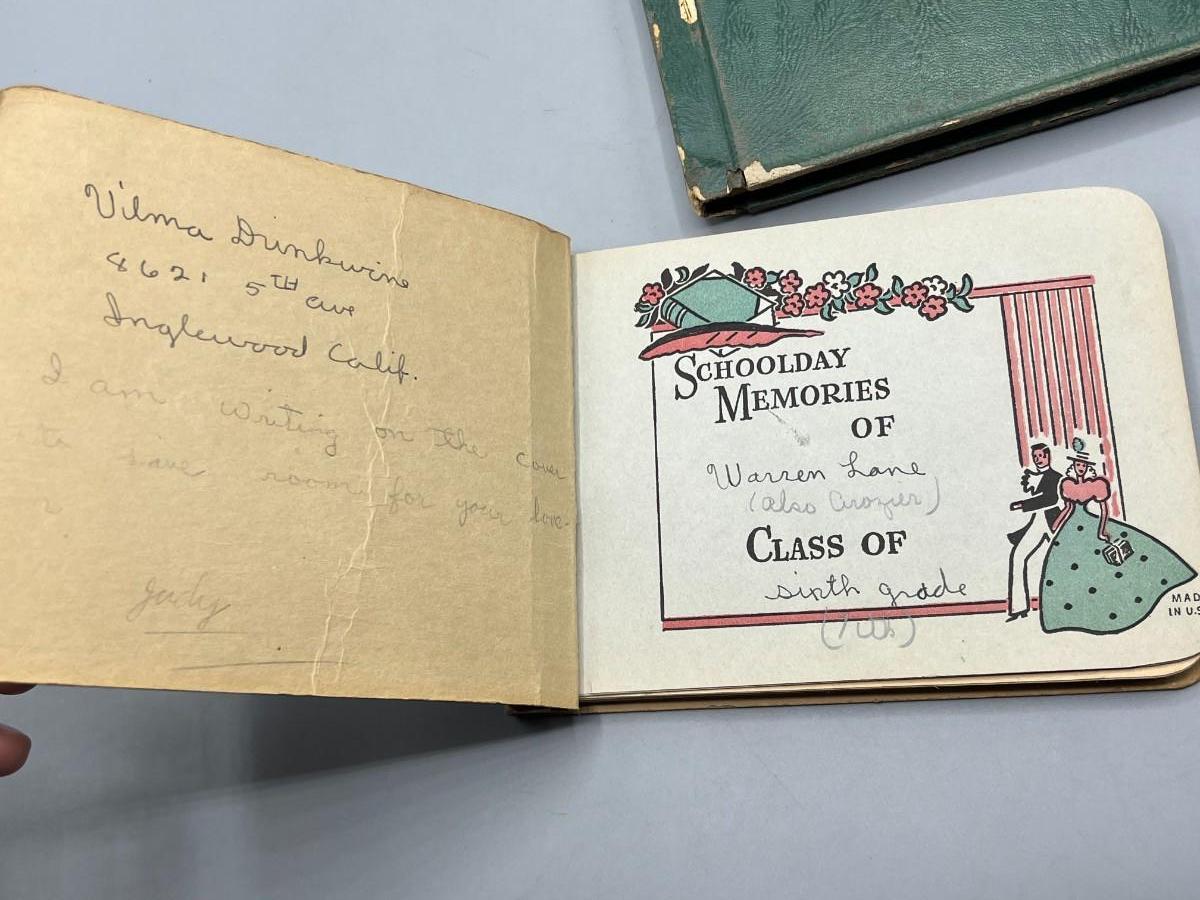 Vilma Dunkwine
8621 5TH Ave
Inglewood Calif.
I am writing on the cover
to save room for your love-
Judy
SCHOOLDAY
MEMORIES
OF
Warren Lane
(also Crozier)
CLASS OF
sixth grade
MAD
IN U.S